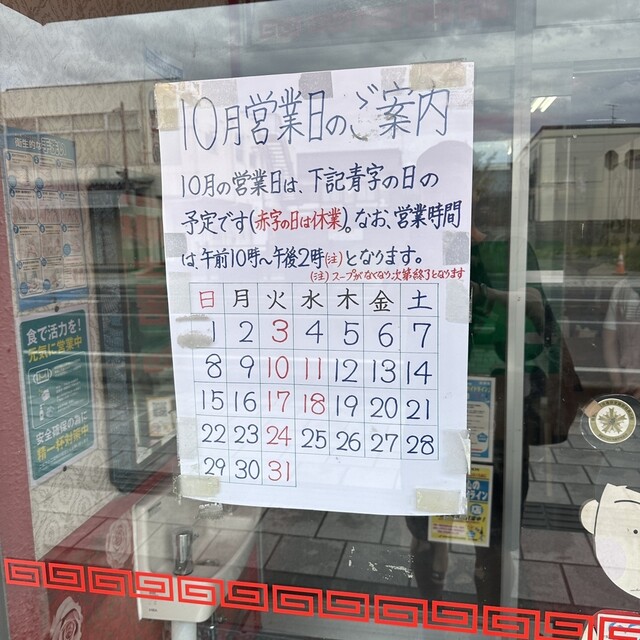 10月営業日のご案内
10月の営業日は、下記青字の日の
予定です(赤字の日は休業)。なお、営業時間
は、午前10時〜午後2時(注)となります。
(注)スープがなくなり次第終了となります
日 月 火 水 木 金 土
1 2 3 4 5 6 7
8 9 10 11 12 13 14
15 16 17 18 19 20 21
22 23 24 25 26 27 28
29 30 31
食で活力を!
元気に営業中
安全確保の為に
精一杯対策中